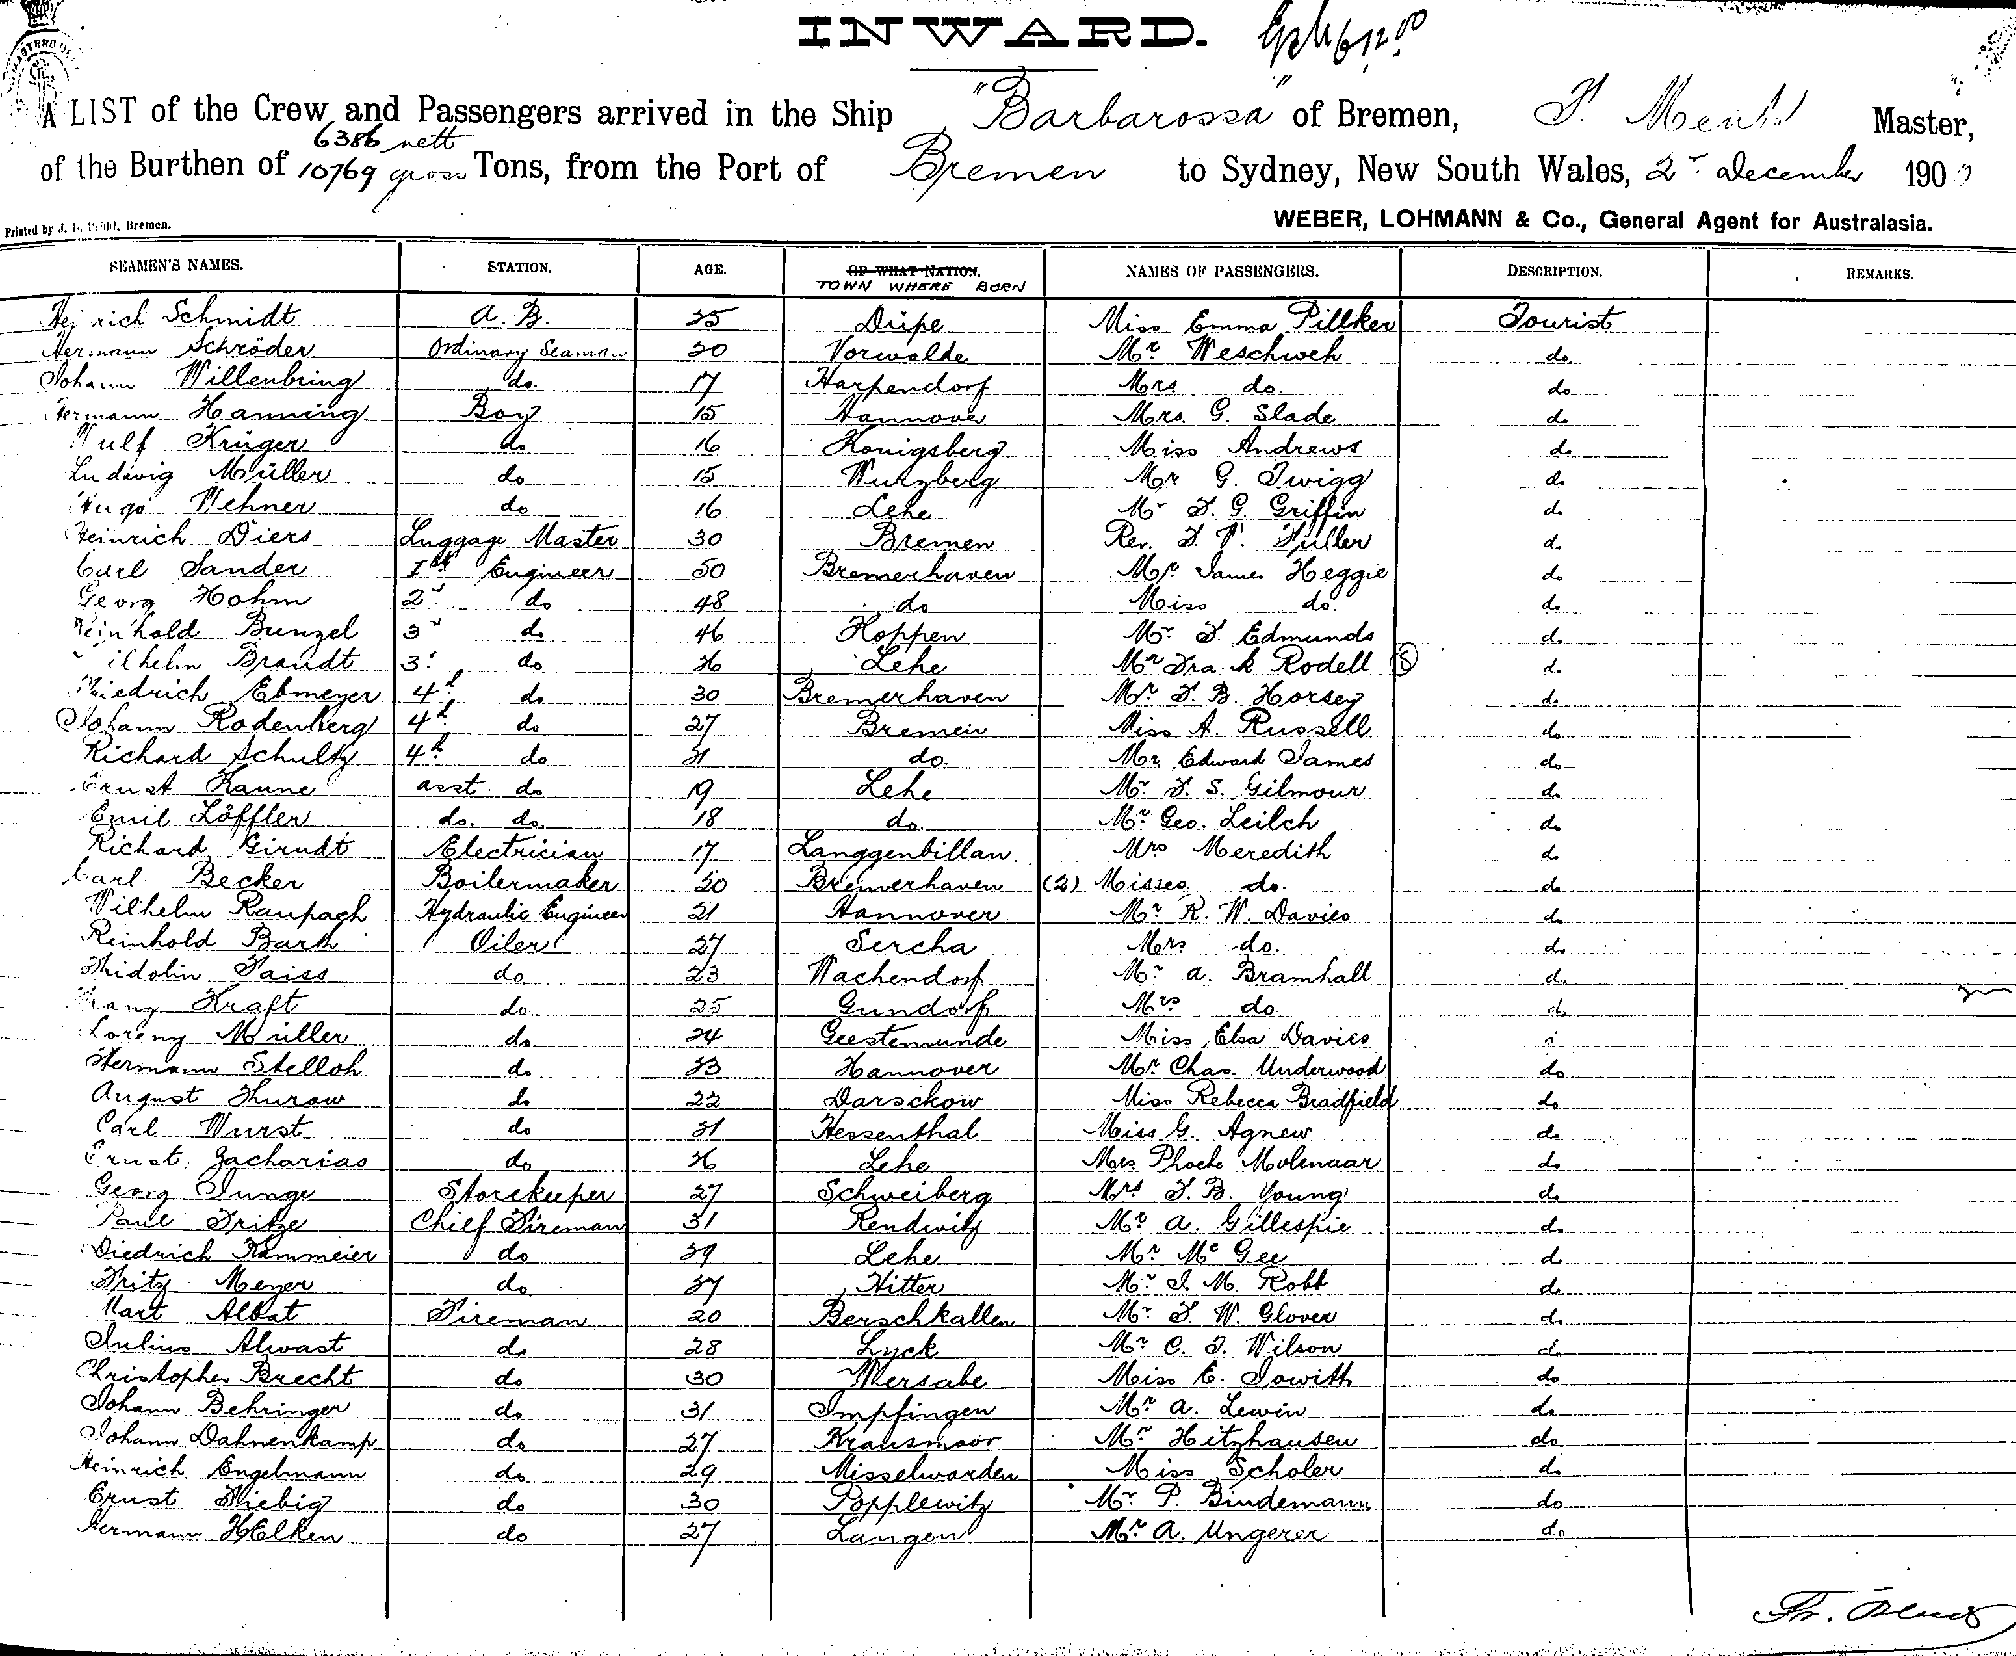 INWARD.
A LIST of the Crew and Passengers arrived in the Ship "Barbarossa" of Bremen, Master,
6386 nett
of the Burthen of 10769 gross Tons, from the Port of Bremen to Sydney, New South Wales, 2nd December 1900
WEBER, LOHMANN & Co., General Agent for Australasia.
Printed by Bremen.
SEAMEN'S NAMES. STATION. AGE. OF WHAT NATION. NAMES OF PASSENGERS. DESCRIPTION. REMARKS.
TOWN WHERE BORN
Heinrich Schmidt A. B. 25 Düpe Miss Emma Pillker Tourist
Hermann Schröder Ordinary Seaman 20 Vorwalde Mr Weschweh do
Johann Willenbring do. 17 Harpendorf Mrs do. do
Hermann Hanning Boy 15 Hannover Mrs. G. Slade do
Wulf Krüger do 16 Konigsberg Miss Andrews do
Ludwig Müller do 15 Wurzberg Mr G. Twigg do
Hugo Wehner do 16 Lehe Mr F. G. Griffin do
Heinrich Diers Luggage Master 30 Bremen Rev. F. W. Fuller do
Carl Sander 1st Engineer 50 Bremerhaven Mr James Heggie do
Georg Hohm 2nd do 48 do Miss do. do
Reinhold Bunzel 3rd do 46 Hoppen Mr F. Edmunds do
Wilhelm Brandt 3rd do 26 Lehe Mr Frank Rodell do
Friedrich Ebmeyer 4th do 30 Bremerhaven Mr F. B. Horsey do
Johann Rodenberg 4th do 27 Bremen Miss A. Russell do
Richard Schultz 4th do 21 do Mr Edward James do
Ernst Haune asst do 19 Lehe Mr F. S. Gilmour do
Emil Löffler do. do. 18 do Mr Geo. Leilch do
Richard Girndt Electrician 17 Langgenbillan Mrs Meredith do
Carl Becker Boilermaker 20 Bremerhaven (2) Misses do. do
Wilhelm Raupach Hydraulic Engineer 21 Hannover Mr R. W. Davies do
Reinhold Bark Oiler 27 Sercha Mrs do. do
Fridolin Faiss do 23 Wachendorf Mr A. Bramhall do
Franz Kraft do 25 Gundorf Mrs do do
Lorenz Müller do 24 Geestemunde Miss Elsa Davies
Hermann Stelloh do 23 Hannover Mr Chas. Underwood do
August Thurow do 22 Darschow Miss Rebecca Bradfield do
Carl Wurst do 21 Hessenthal Miss G. Agnew do
Ernst Zacharias do 26 Lehe Mrs Phoebe Molenaar do
Georg Junge Storekeeper 27 Schweiberg Mrs F. B. Young do
Paul Fritze Chief Fireman 31 Rendwitz Mr A. Gillespie do
Diedrich Kammeier do 29 Lehe Mr Mc Gee do
Fritz Meyer do 37 Hitter Mr J. M. Robb do
Albat Fireman 20 Berschkallen Mr F. W. Glover do
Julius Alwast do 28 Lyck Mr C. F. Wilson do
Christopher Brecht do 30 Wersabe Miss E. Jowith do
Johann Behringer do 31 Impfingen Mr A. Lewin do
Johann Dahnenkamp do 27 Krausmoor Mr Hitzhausen do
Heinrich Engelmann do 29 Misselwarden Miss Scholer do
Ernst Fiebig do 30 Popplewitz Mr P. Bindemann do
Hermann HElken do 27 Langen Mr A. Ungerer do